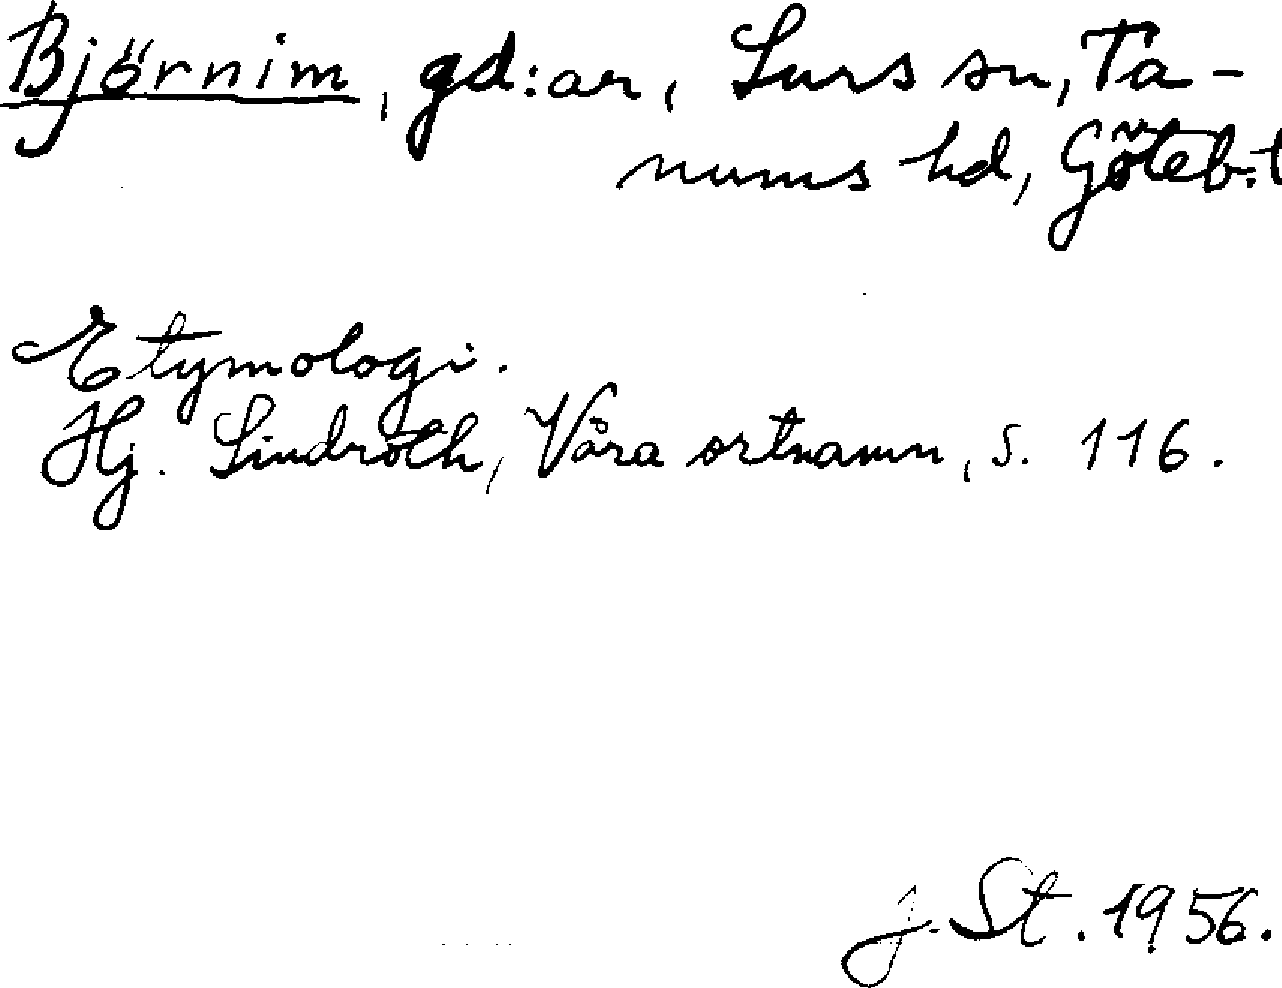 Björnim, gd:ar, Lurs sn, Ta-
nums hd, Göteb:t
Etymologi.
Hj. Lindroth, Våra ortnamn, s. 116.
J. St. 1956.